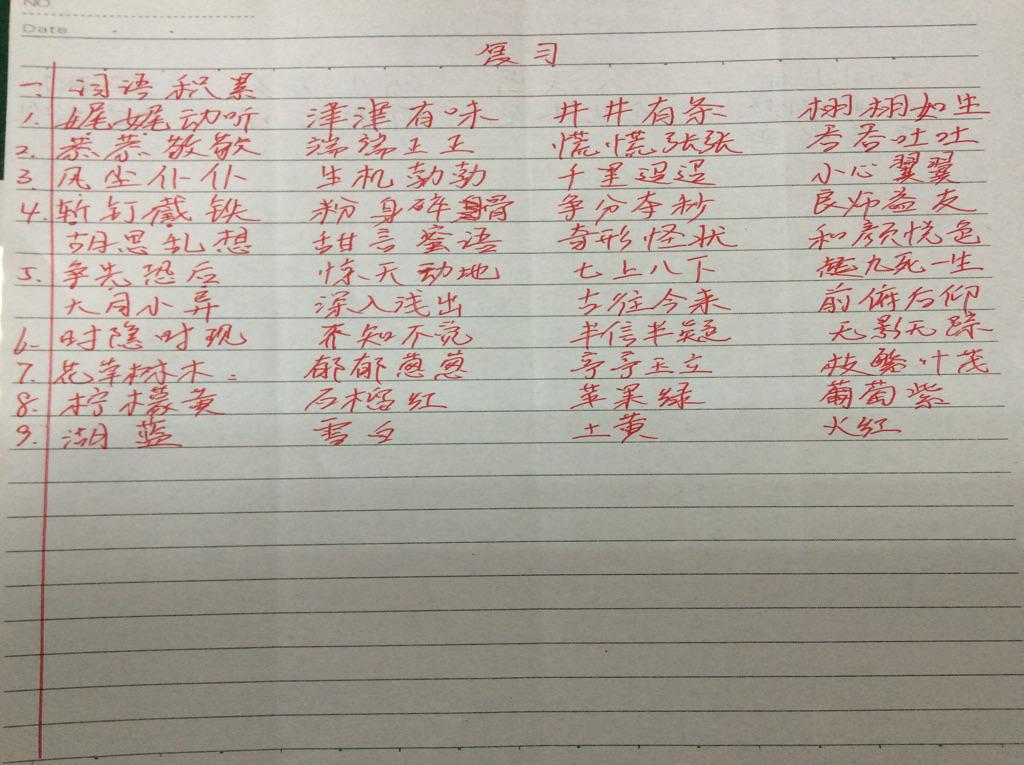 NO
Date
复习
一. 词语积累
1. 娓娓动听 津津有味 井井有条 栩栩如生
2. 恭恭敬敬 端端正正 慌慌张张 吞吞吐吐
3. 风尘仆仆 生机勃勃 千里迢迢 小心翼翼
4. 斩钉截铁 粉身碎骨 争分夺秒 良师益友
胡思乱想 甜言蜜语 奇形怪状 和颜悦色
5. 争先恐后 惊天动地 七上八下 九死一生
大同小异 深入浅出 古往今来 前俯后仰
6. 时隐时现 不知不觉 半信半疑 无影无踪
7. 花草树木 郁郁葱葱 亭亭玉立 枝繁叶茂
8. 柠檬黄 石榴红 苹果绿 葡萄紫
9. 湖蓝 雪白 土黄 火红